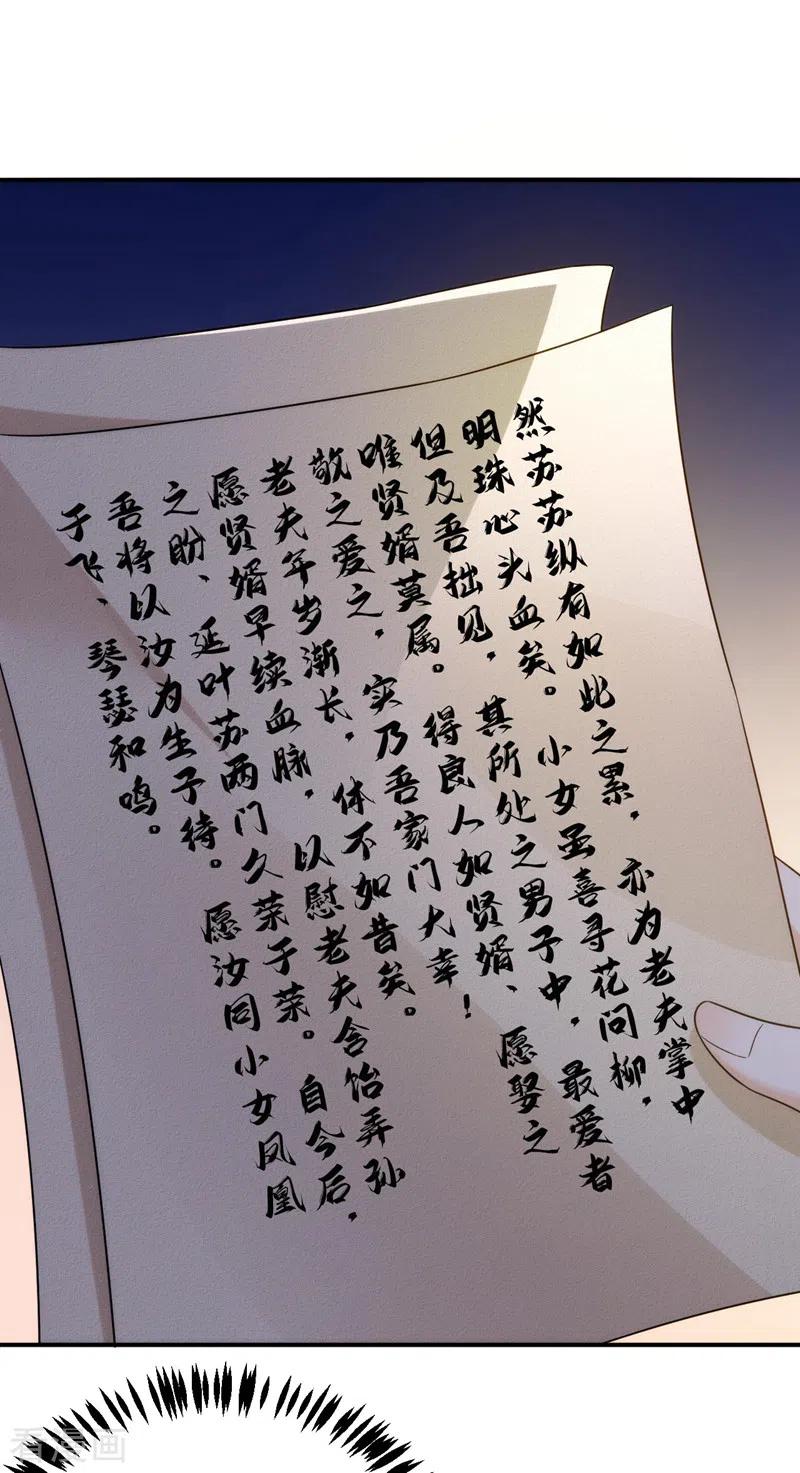 然苏苏纵有如此之累，亦为老夫掌中
明珠心头血矣。小女虽喜寻花问柳，
但及吾拙见，其所处之男子中，最爱者
唯贤婿莫属。得良人如贤婿、愿娶之
敬之爱之，实乃吾家门大幸！
老夫年岁渐长，体不如昔矣。
愿贤婿早续血脉，以慰老夫含饴弄孙
之盼、延叶苏两门久荣于荣。自今后，
吾将以汝为生子待。愿汝同小女凤凰
于飞、琴瑟和鸣。
看漫画